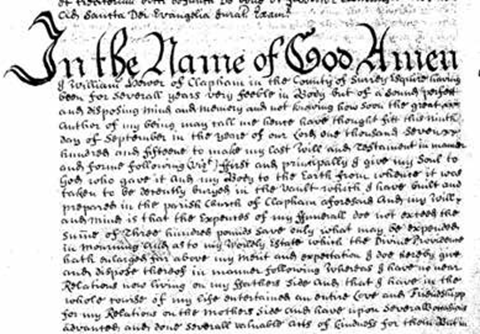 In the Name of God Amen
I William Hewer of Clapham in the County of Surrey Esquire having
been for severall years very feeble in Body but of a sound perfect
and disposing mind and memory and not knowing how soon the great
Author of my being may call me hence have thought fitt this ninth
day of September in the year of our Lord one thousand seven
hundred and fifteene to make my last Will and Testament in manner
and forme following (vizt) ffirst and principally I give my Soul to
God who gave it and my Body to the Earth from whence it was
taken to be decently buryed in the Vault which I have built and
prepared in the parish Church of Clapham aforesaid And my Will
and mind is that the Expences of my ffunerall doe not exceed the
summe of Three hundred pounds save only what may be expended
in Mourning And as to my Worldly Estate which the Divine Providence
hath enlarged far above my Merit and expectation I doe hereby give
and dispose thereof in manner following Whereas I have no near
Relations now living on my ffathers Side And that I have in the
whole course of my life entertained an entire Love and ffriendshipp
for my Relations on the Mothers Side And have upon Severall occasions
advanced and done severall valuable Acts of kindness for them But in